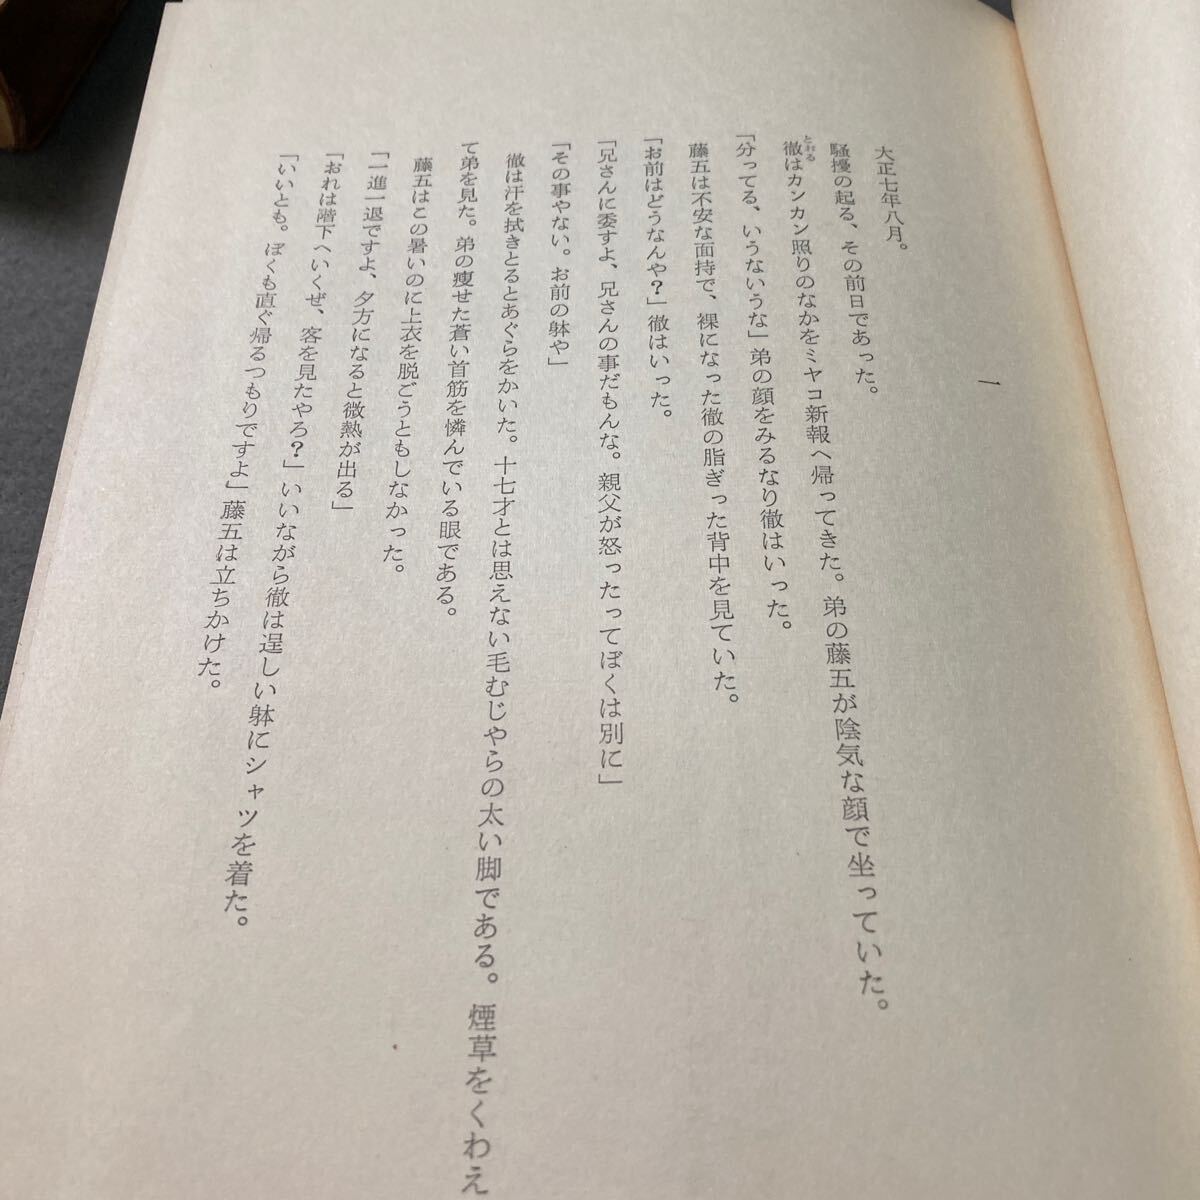 一
大正七年八月。
騒擾の起る、その前日であった。
徹はカンカン照りのなかをミヤコ新報へ帰ってきた。弟の藤五が陰気な顔で坐っていた。
とおる
「分ってる、いうないうな」弟の顔をみるなり徹はいった。
藤五は不安な面持で、裸になった徹の脂ぎった背中を見ていた。
「お前はどうなんや?」徹はいった。
「兄さんに委すよ、兄さんの事だもんな。親父が怒ったってぼくは別に」
「その事やない。お前の躰や」
徹は汗を拭きとるとあぐらをかいた。十七才とは思えない毛むじやらの太い脚である。煙草をくわえ
て弟を見た。弟の痩せた蒼い首筋を憐んでいる眼である。
藤五はこの暑いのに上衣を脱ごうともしなかった。
「一進一退ですよ、夕方になると微熱が出る」
「おれは階下へいくぜ、客を見たやろ?」いいながら徹は逞しい躰にシャツを着た。
「いいとも。ぼくも直ぐ帰るつもりですよ」藤五は立ちかけた。